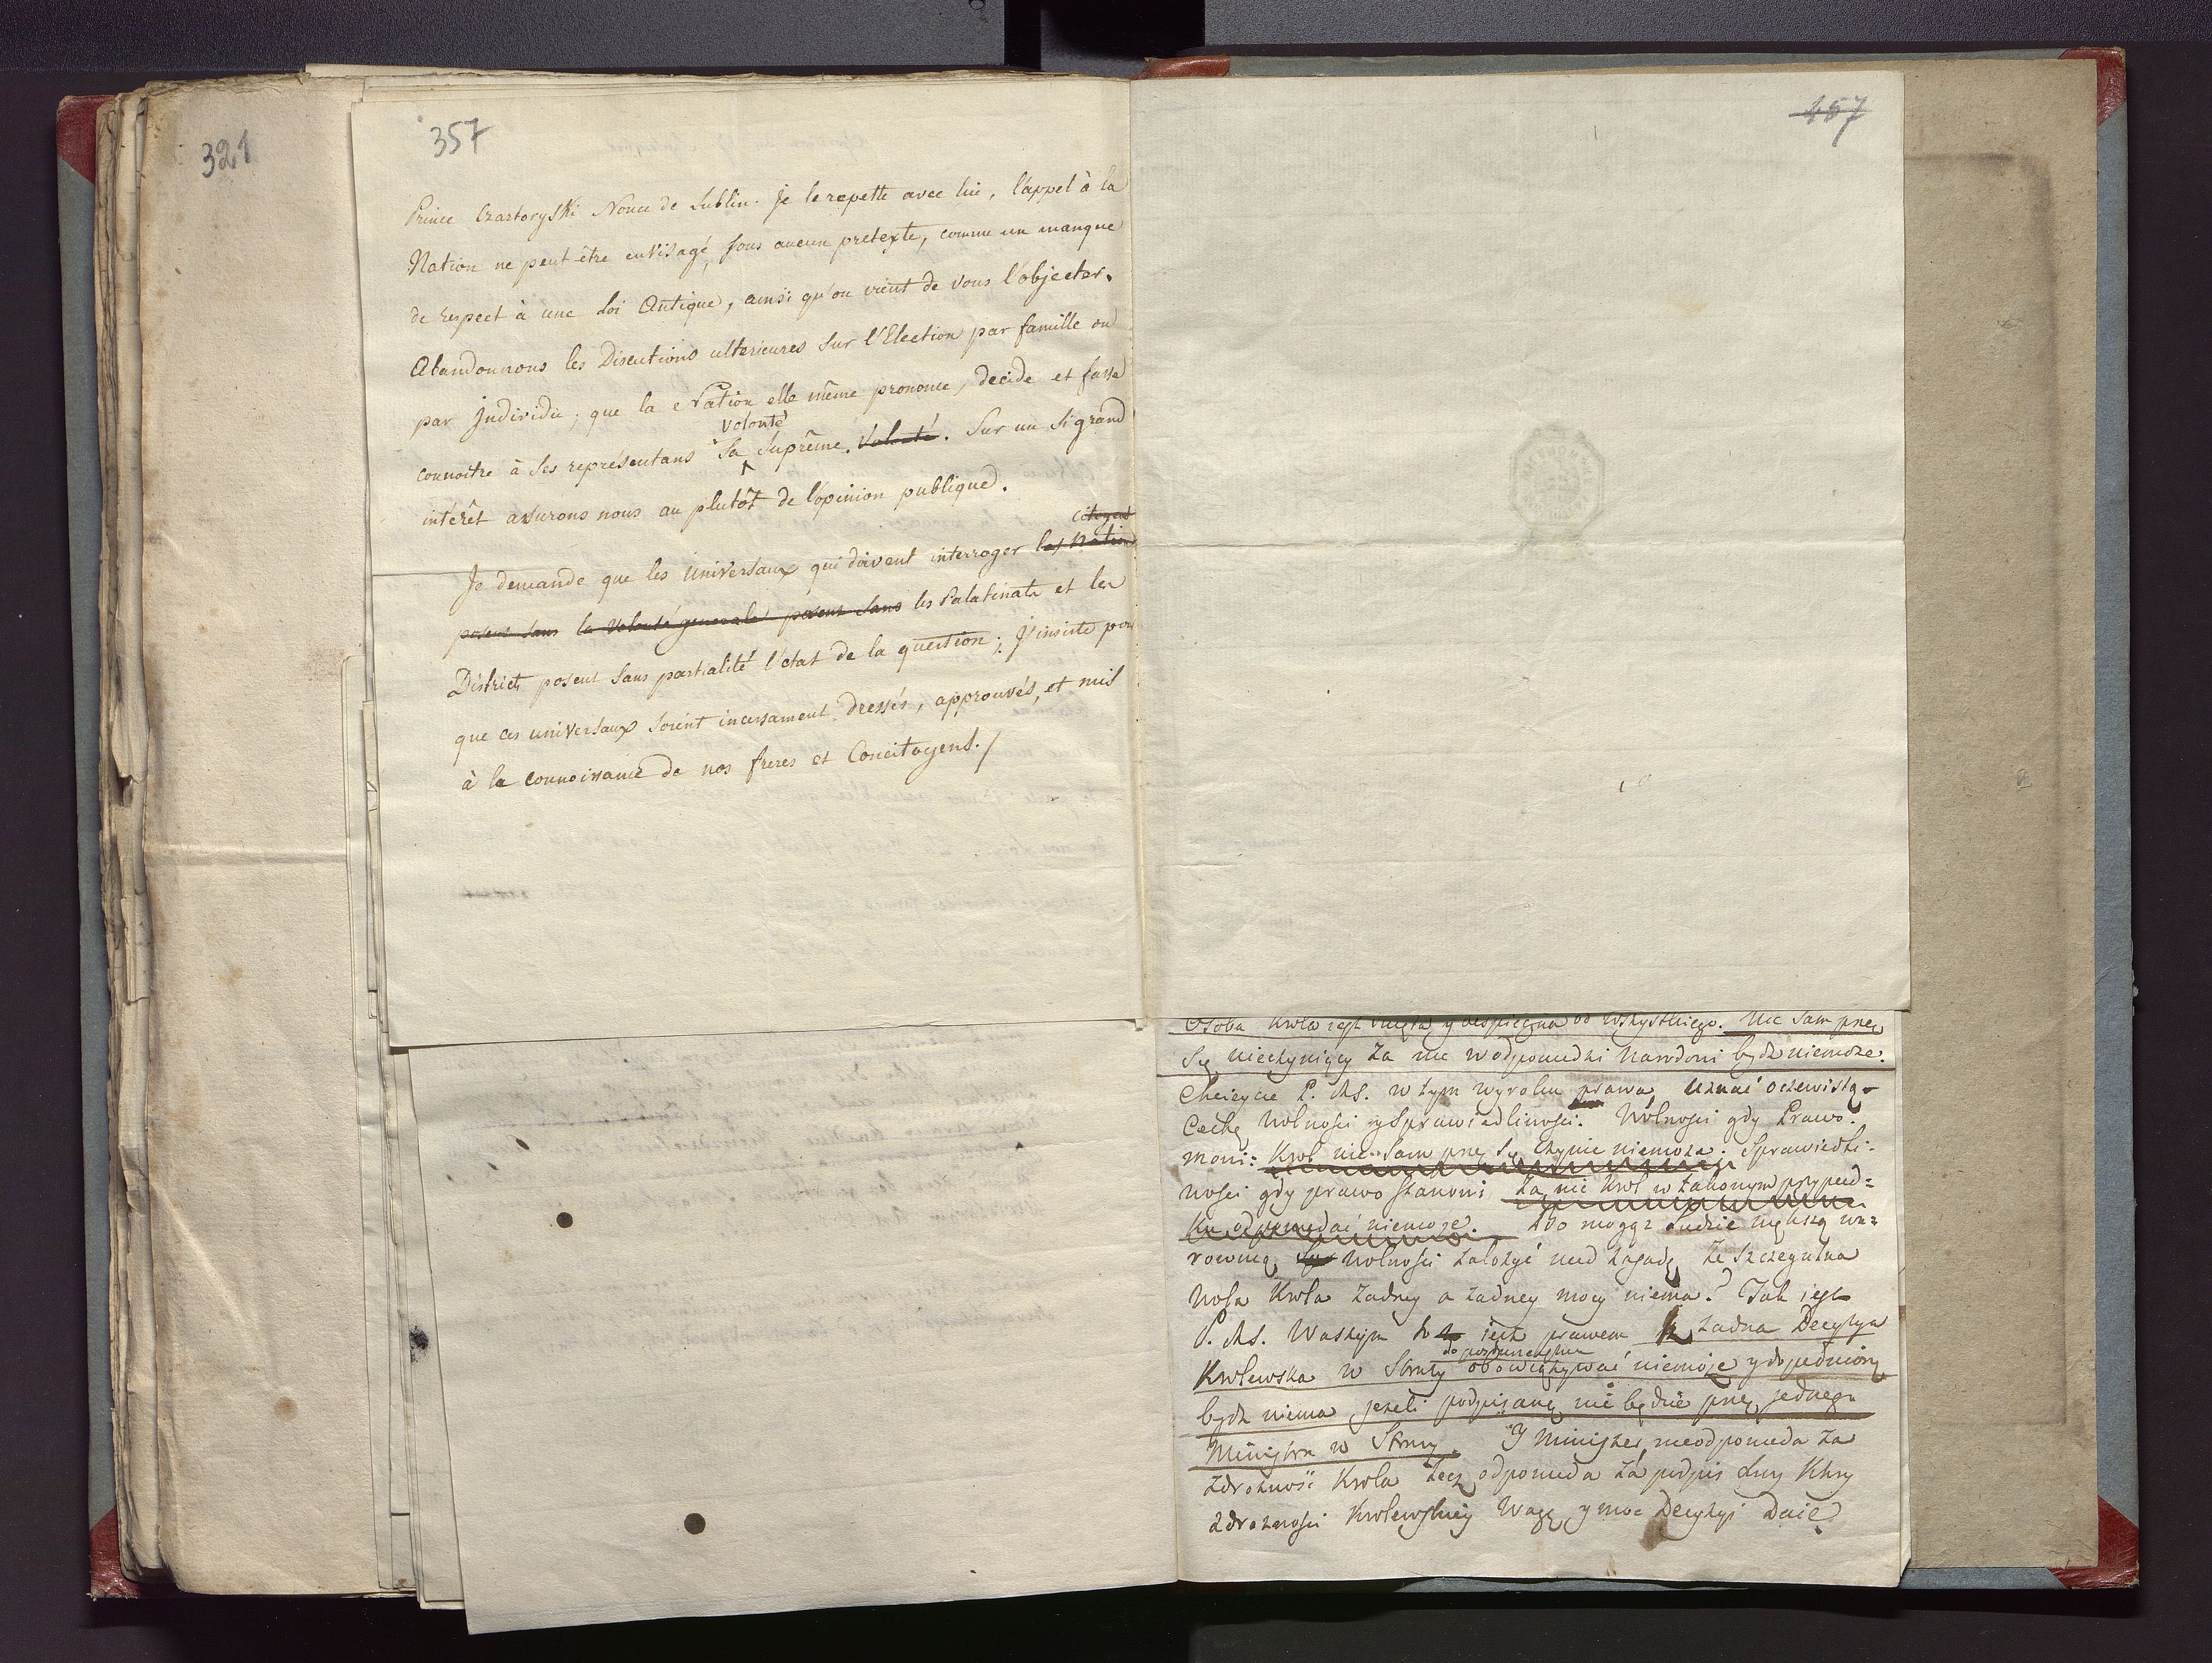 321
357
Prince Czartoryski Nonce de Lublin. Je le repette avec lui, l'appel à la
Nation ne peut être envisagé, sous aucun pretexte, comme un manque
de respect à une Loi Antique, ainsi qu'on vient de vous l'objecter.
Abandonnons les Discutions ulterieures sur l'Election par famille ou
par Individu; que la Nation elle même prononce, decide et fasse
volonté
connoitre à ses représentans sa suprême volonté. Sur un si grand
intérêt assurons nous au plutôt de l'opinion publique.
citoyens
Je demande que les Universaux qui doivent interroger les Nation
posent sans la volonté generale posent sans les Palatinats et les
Districts posent sans partialité l'etat de la question; j'insiste pour
que ces universaux soient incessament dressés, approuvés, et mis
à la connoissance de nos freres et Concitoyens./
457
Osoba Krola jest swięta y bespieczna od wszystkiego. Nic sam przez
Się nieczyniący za nic w odpowiedzi Narodowi bydz niemoze.
Chcieycie P. M. S. w tym wyroku prawa, uznać oczewistą
Cechę Wolnosci y Sprawiedliwosci. Wolnosci gdy Prawo
mowi: Krol nic sam przez Się czynic niemoze. Sprawiedli-
wosci gdy prawo stanowi za nic Krol w takowym przypad=
ku odpowiadać niemoze. Bo mogąz Ludzie większą wa=
rownią wolnosci założyć nad zasadę że szczegulna
Wola Krola zadney a zadney mocy niema? Tak jest
P. M. S. Waszym to jest prawem iz zadna Decyzya
do posłuszenstwa
Krolewska w Strazy obowiązywać niemoże y dopełnioną
bydz niema jezeli podpisaną nie będzie przez jednego
Ministra w Strazy. Y Minister nieodpowiada za
zdrożność Krola lecz odpowiada za podpis swoy Ktory
zdroznosci Krolewskiey Wagę y moc Decyzyi daie